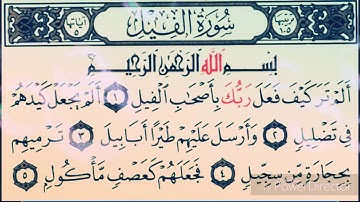 ترتيبها ١٠٥ سُورَةُ الْفِيلِ آياتها ٥
بِسْمِ اللَّهِ الرَّحْمَٰنِ الرَّحِيمِ
أَلَمْ تَرَ كَيْفَ فَعَلَ رَبُّكَ بِأَصْحَابِ الْفِيلِ ١ أَلَمْ يَجْعَلْ كَيْدَهُمْ
فِي تَضْلِيلٍ ٢ وَأَرْسَلَ عَلَيْهِمْ طَيْرًا أَبَابِيلَ ٣ تَرْمِيهِم
بِحِجَارَةٍ مِّن سِجِّيلٍ ٤ فَجَعَلَهُمْ كَعَصْفٍ مَّأْكُولٍ ٥
PowerDirector